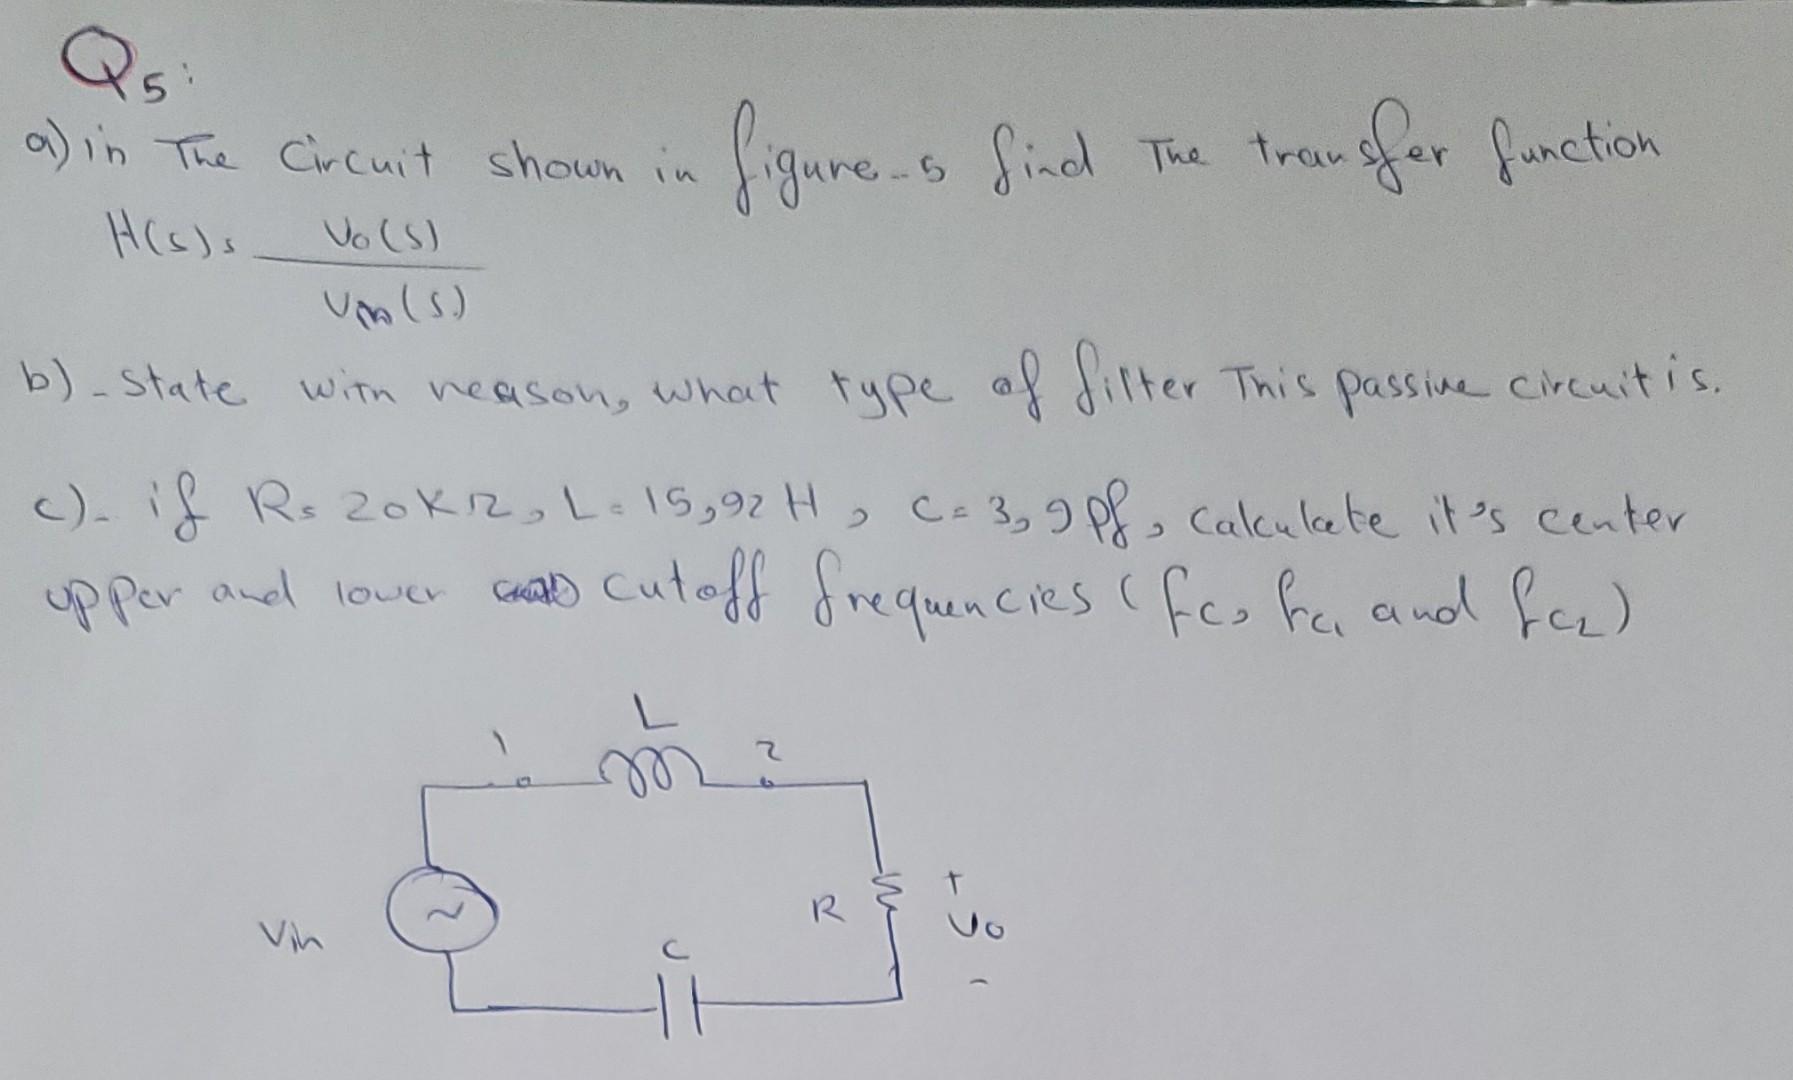 Q5:
a) in The Circuit shown in figure-5 find The transfer function
H(s)= Vo(s)
Vin(s)
b)- State with reason, what type of filter This passive circuit is.
c)- if R= 20KΩ, L= 15,92 H, C= 3,9 Pf, Calculate it's center
upper and lower cutoff frequencies (fc, fc1 and fc2)
L
1
2
R
+
Vo
-
Vin
C